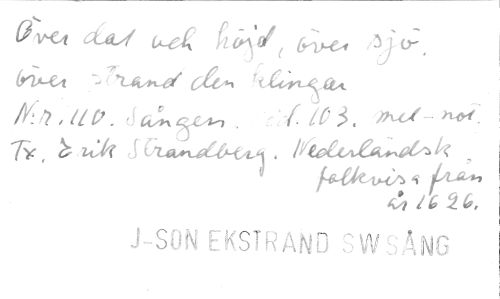 Över dal och höjd, över sjö,
över strand den klingar
N:r. 110. Sången. sid. 103. mel-not.
Tx. Erik Strandberg. Nederländsk
folkvisa från
år 1626.
J-SON EKSTRAND SW SÅNG